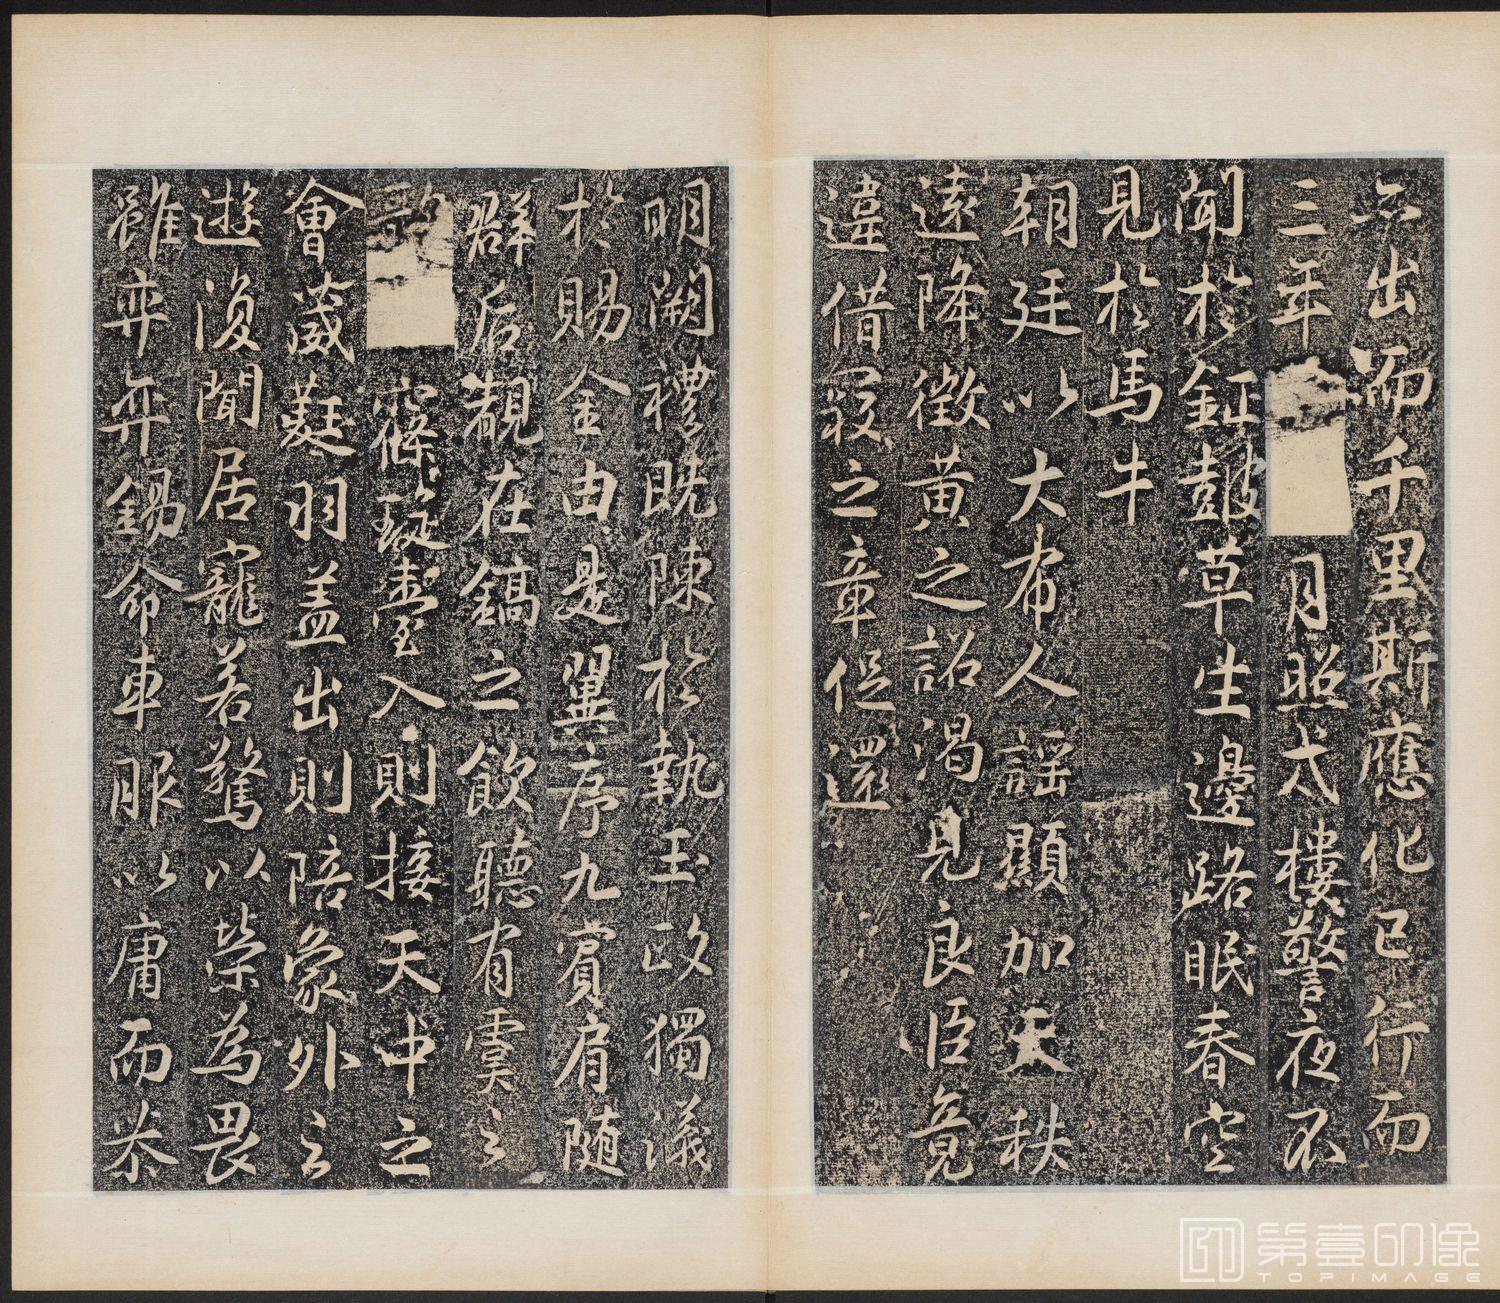 出而千里斯應化已行而
三年
月照戍樓警夜不
聞於鉦鼓草生邊路眠春空
見於馬牛
朝廷以大布人謡顯加天秩
遠降徵黄之詔渴見良臣竟
違借寇之章促還
明闕禮既陳於執玉政獨議
於賜金由是翼序九賓肩随
群后覲在鎬之飲聽有虞之
歌
窱琁臺入則接天中之
會葳蕤羽盖出則陪象外之
遊復聞居寵若驚以榮為畏
雖弈弈錫命車服以庸而恭
第壹印像
TOPIMAGE